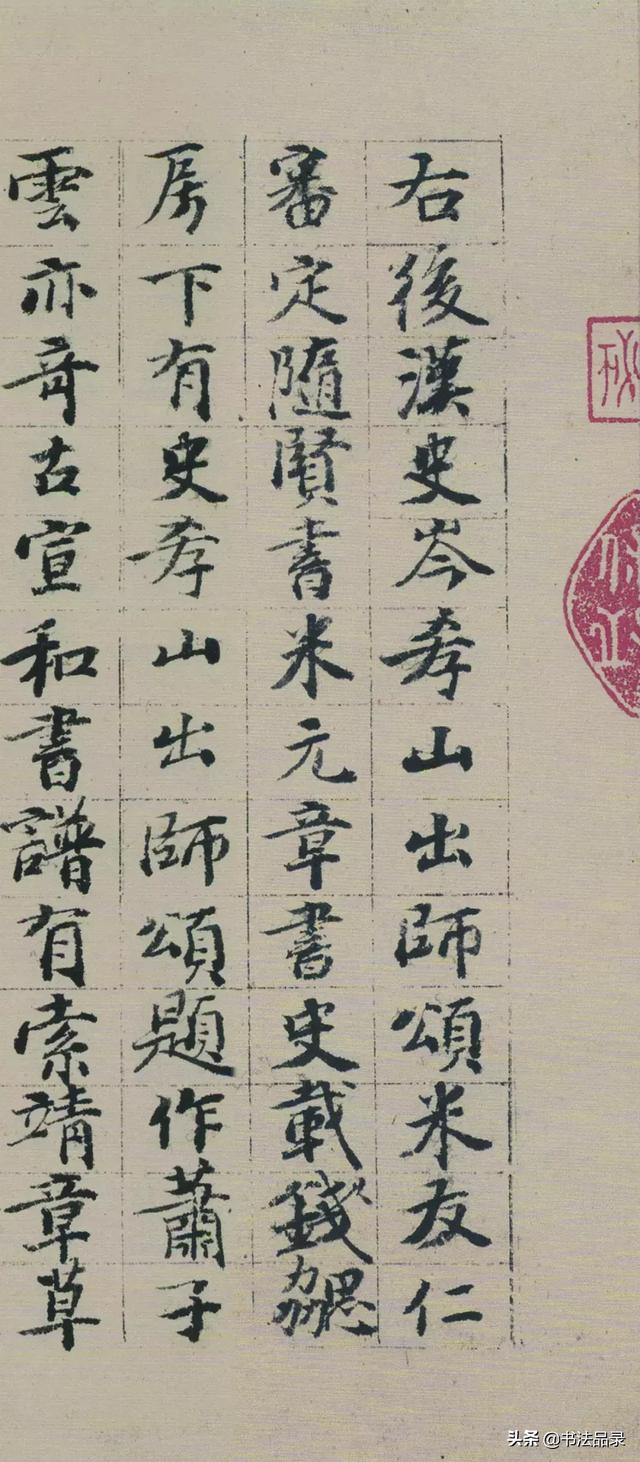 右後漢史岑孝山出師頌米友仁
審定隨賢書米元章書史載錢勰
房下有史孝山出師頌題作蕭子
雲亦奇古宣和書譜有索靖章草
头条 @书法品录